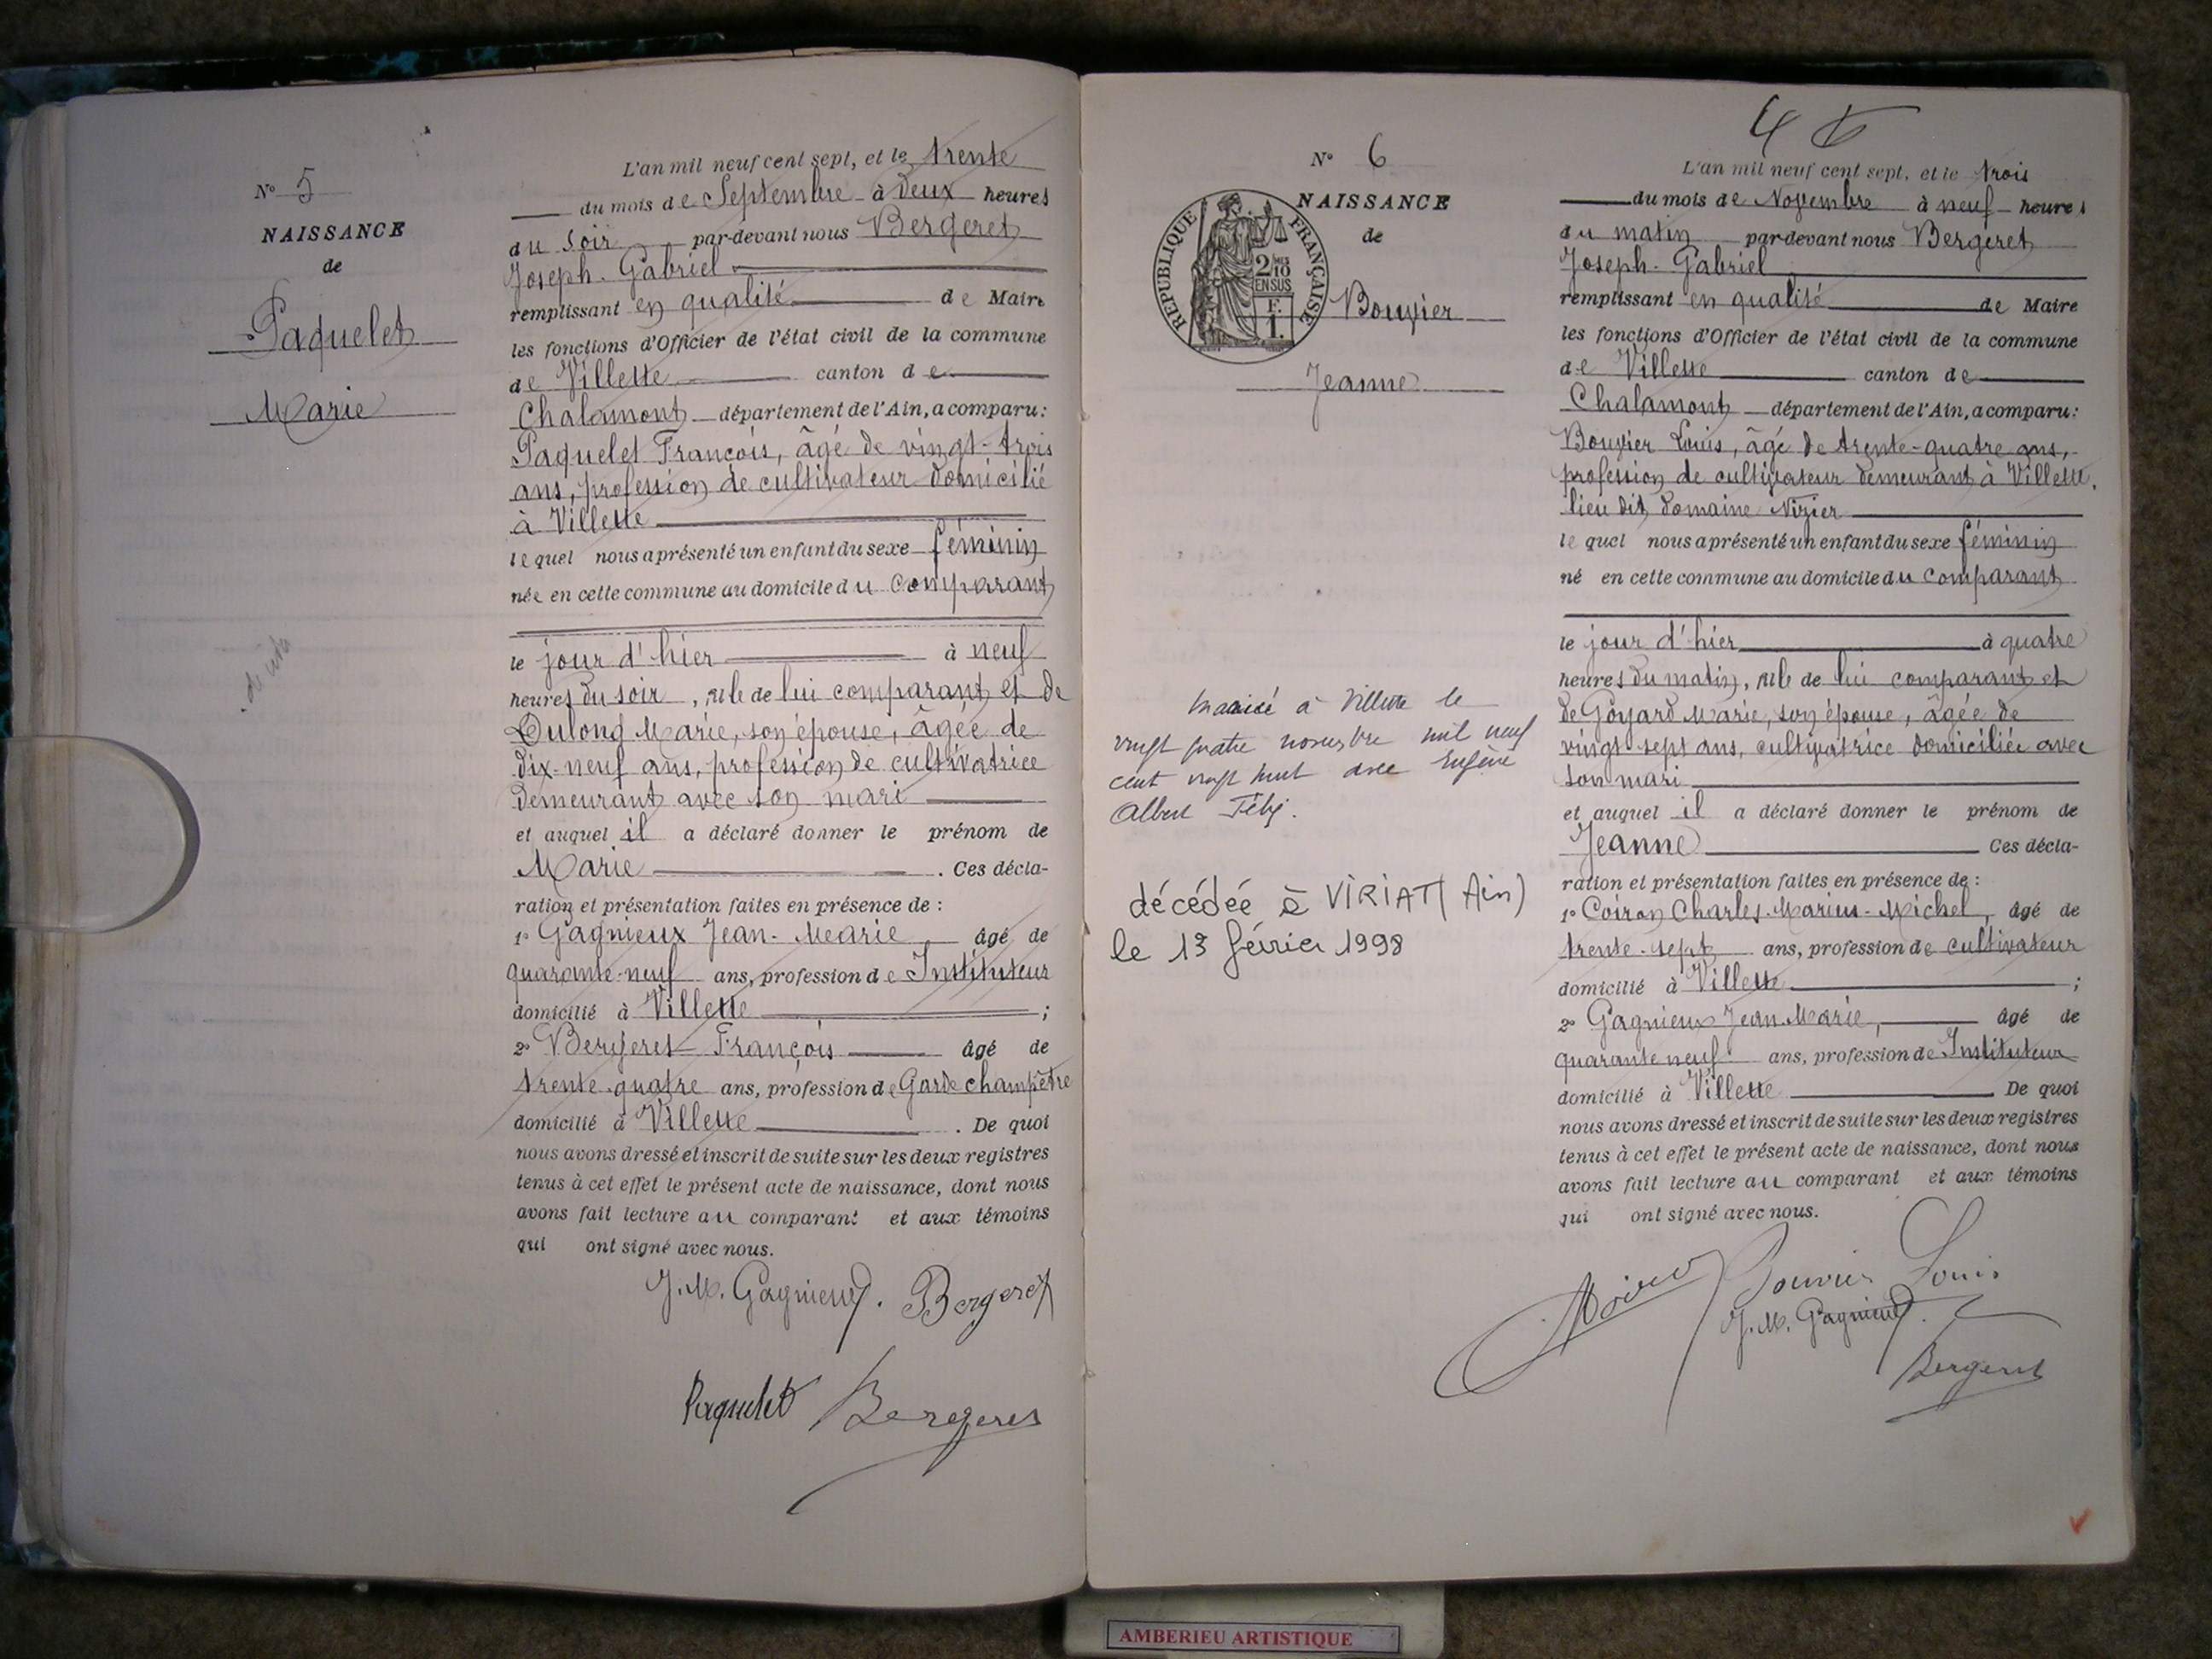 N° 5
NAISSANCE
de
Paquelet
Marie
L'an mil neuf cent sept, et le trente
du mois de Septembre à deux heures
du soir par-devant nous Bergeret
Joseph-Gabriel
remplissant en qualité de Maire
les fonctions d'Officier de l'état civil de la commune
de Villette canton de
Chalamont département de l'Ain, a comparu :
Paquelet François, âgé de vingt-trois
ans, profession de cultivateur domicilié
à Villette
lequel nous a présenté un enfant du sexe féminin
née en cette commune au domicile du comparant
le jour d'hier à neuf
heures du soir, de lui comparant et de
Dulong Marie, son épouse, âgée de
dix-neuf ans, profession de cultivatrice
demeurant avec son mari
et auquel il a déclaré donner le prénom de
Marie . Ces décla-
ration et présentation faites en présence de :
1° Gagnieux Jean-Marie, âgé de
quarante-neuf ans, profession de Instituteur
domicilié à Villette ;
2° Bergeret François âgé de
trente-quatre ans, profession de Garde champêtre
domicilié à Villette . De quoi
nous avons dressé et inscrit de suite sur les deux registres
tenus à cet effet le présent acte de naissance, dont nous
avons fait lecture au comparant et aux témoins
qui ont signé avec nous.
J. M. Gagnieux. Bergeret
Paquelet Bergeret
N° 6
NAISSANCE
de
RÉPUBLIQUE FRANÇAISE
2/10
EN SUS
F.
1.
Bouvier
Jeanne
mariée à Villette le
vingt quatre novembre mil neuf
cent vingt huit avec Eugène
Albert
décédée à VIRIAT (Ain)
le 13 février 1998
4
L'an mil neuf cent sept, et le trois
du mois de Novembre à neuf heures
du matin par-devant nous Bergeret
Joseph-Gabriel
remplissant en qualité de Maire
les fonctions d'Officier de l'état civil de la commune
de Villette canton de
Chalamont département de l'Ain, a comparu :
Bouvier Louis, âgé de trente-quatre ans,
profession de cultivateur demeurant à Villette,
lieu dit domaine Nizier
lequel nous a présenté un enfant du sexe féminin
né en cette commune au domicile du comparant
le jour d'hier à quatre
heures du matin, de lui comparant et
de Goyard Marie, son épouse, âgée de
vingt-sept ans, cultivatrice domiciliée avec
son mari
et auquel il a déclaré donner le prénom de
Jeanne Ces décla-
ration et présentation faites en présence de :
1° Coiron Charles-Marius-Michel, âgé de
trente-sept ans, profession de cultivateur
domicilié à Villette ;
2° Gagnieux Jean Marie, âgé de
quarante neuf ans, profession de Instituteur
domicilié à Villette De quoi
nous avons dressé et inscrit de suite sur les deux registres
tenus à cet effet le présent acte de naissance, dont nous
avons fait lecture au comparant et aux témoins
qui ont signé avec nous.
Coiron Bouvier Louis
J. M. Gagnieux.
Bergeret
AMBERIEU ARTISTIQUE